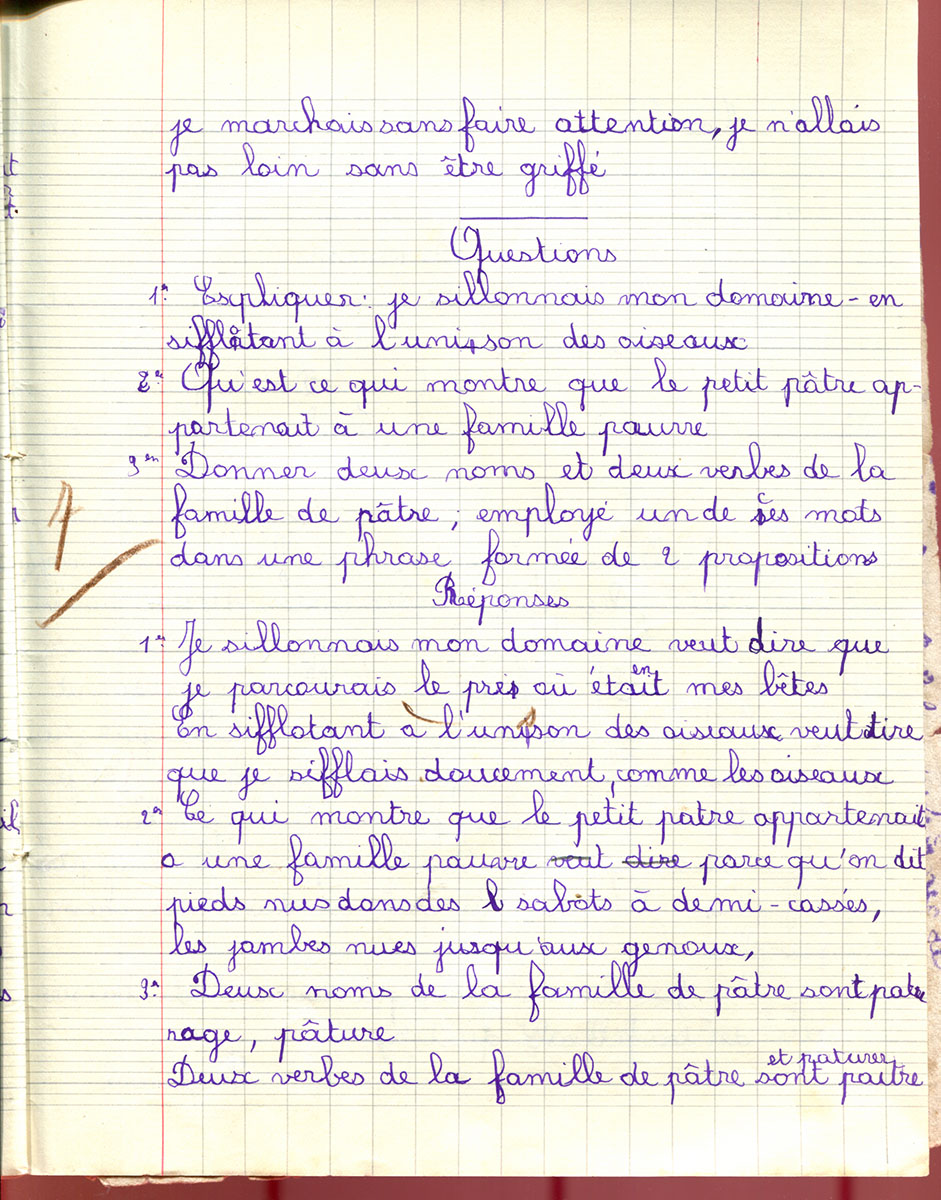 je marchais sans faire attention, je n'allais
pas loin sans être griffé
Questions
1° Expliquer: je sillonnais mon domaine - en
sifflotant à l'unisson des oiseaux
2° Qu'est ce qui montre que le petit pâtre ap-
partenait à une famille pauvre
3en Donner deux noms et deux verbes de la
famille de pâtre; employé un de ces mots
dans une phrase formée de 2 propositions
Réponses
1° Je sillonnais mon domaine veut dire que
je parcourais le prés où étaient mes bêtes
En sifflotant à l'unison des oiseaux veut dire
que je sifflais doucement, comme les oiseaux
2° Ce qui montre que le petit patre appartenait
a une famille pauvre veut dire parce qu'on dit
pieds nus dans des sabots à demi-cassés,
les jambes nues jusqu'aux genoux,
3° Deux noms de la famille de pâtre sont patu
rage, pâture
et paturer
Deux verbes de la famille de pâtre sont paitre